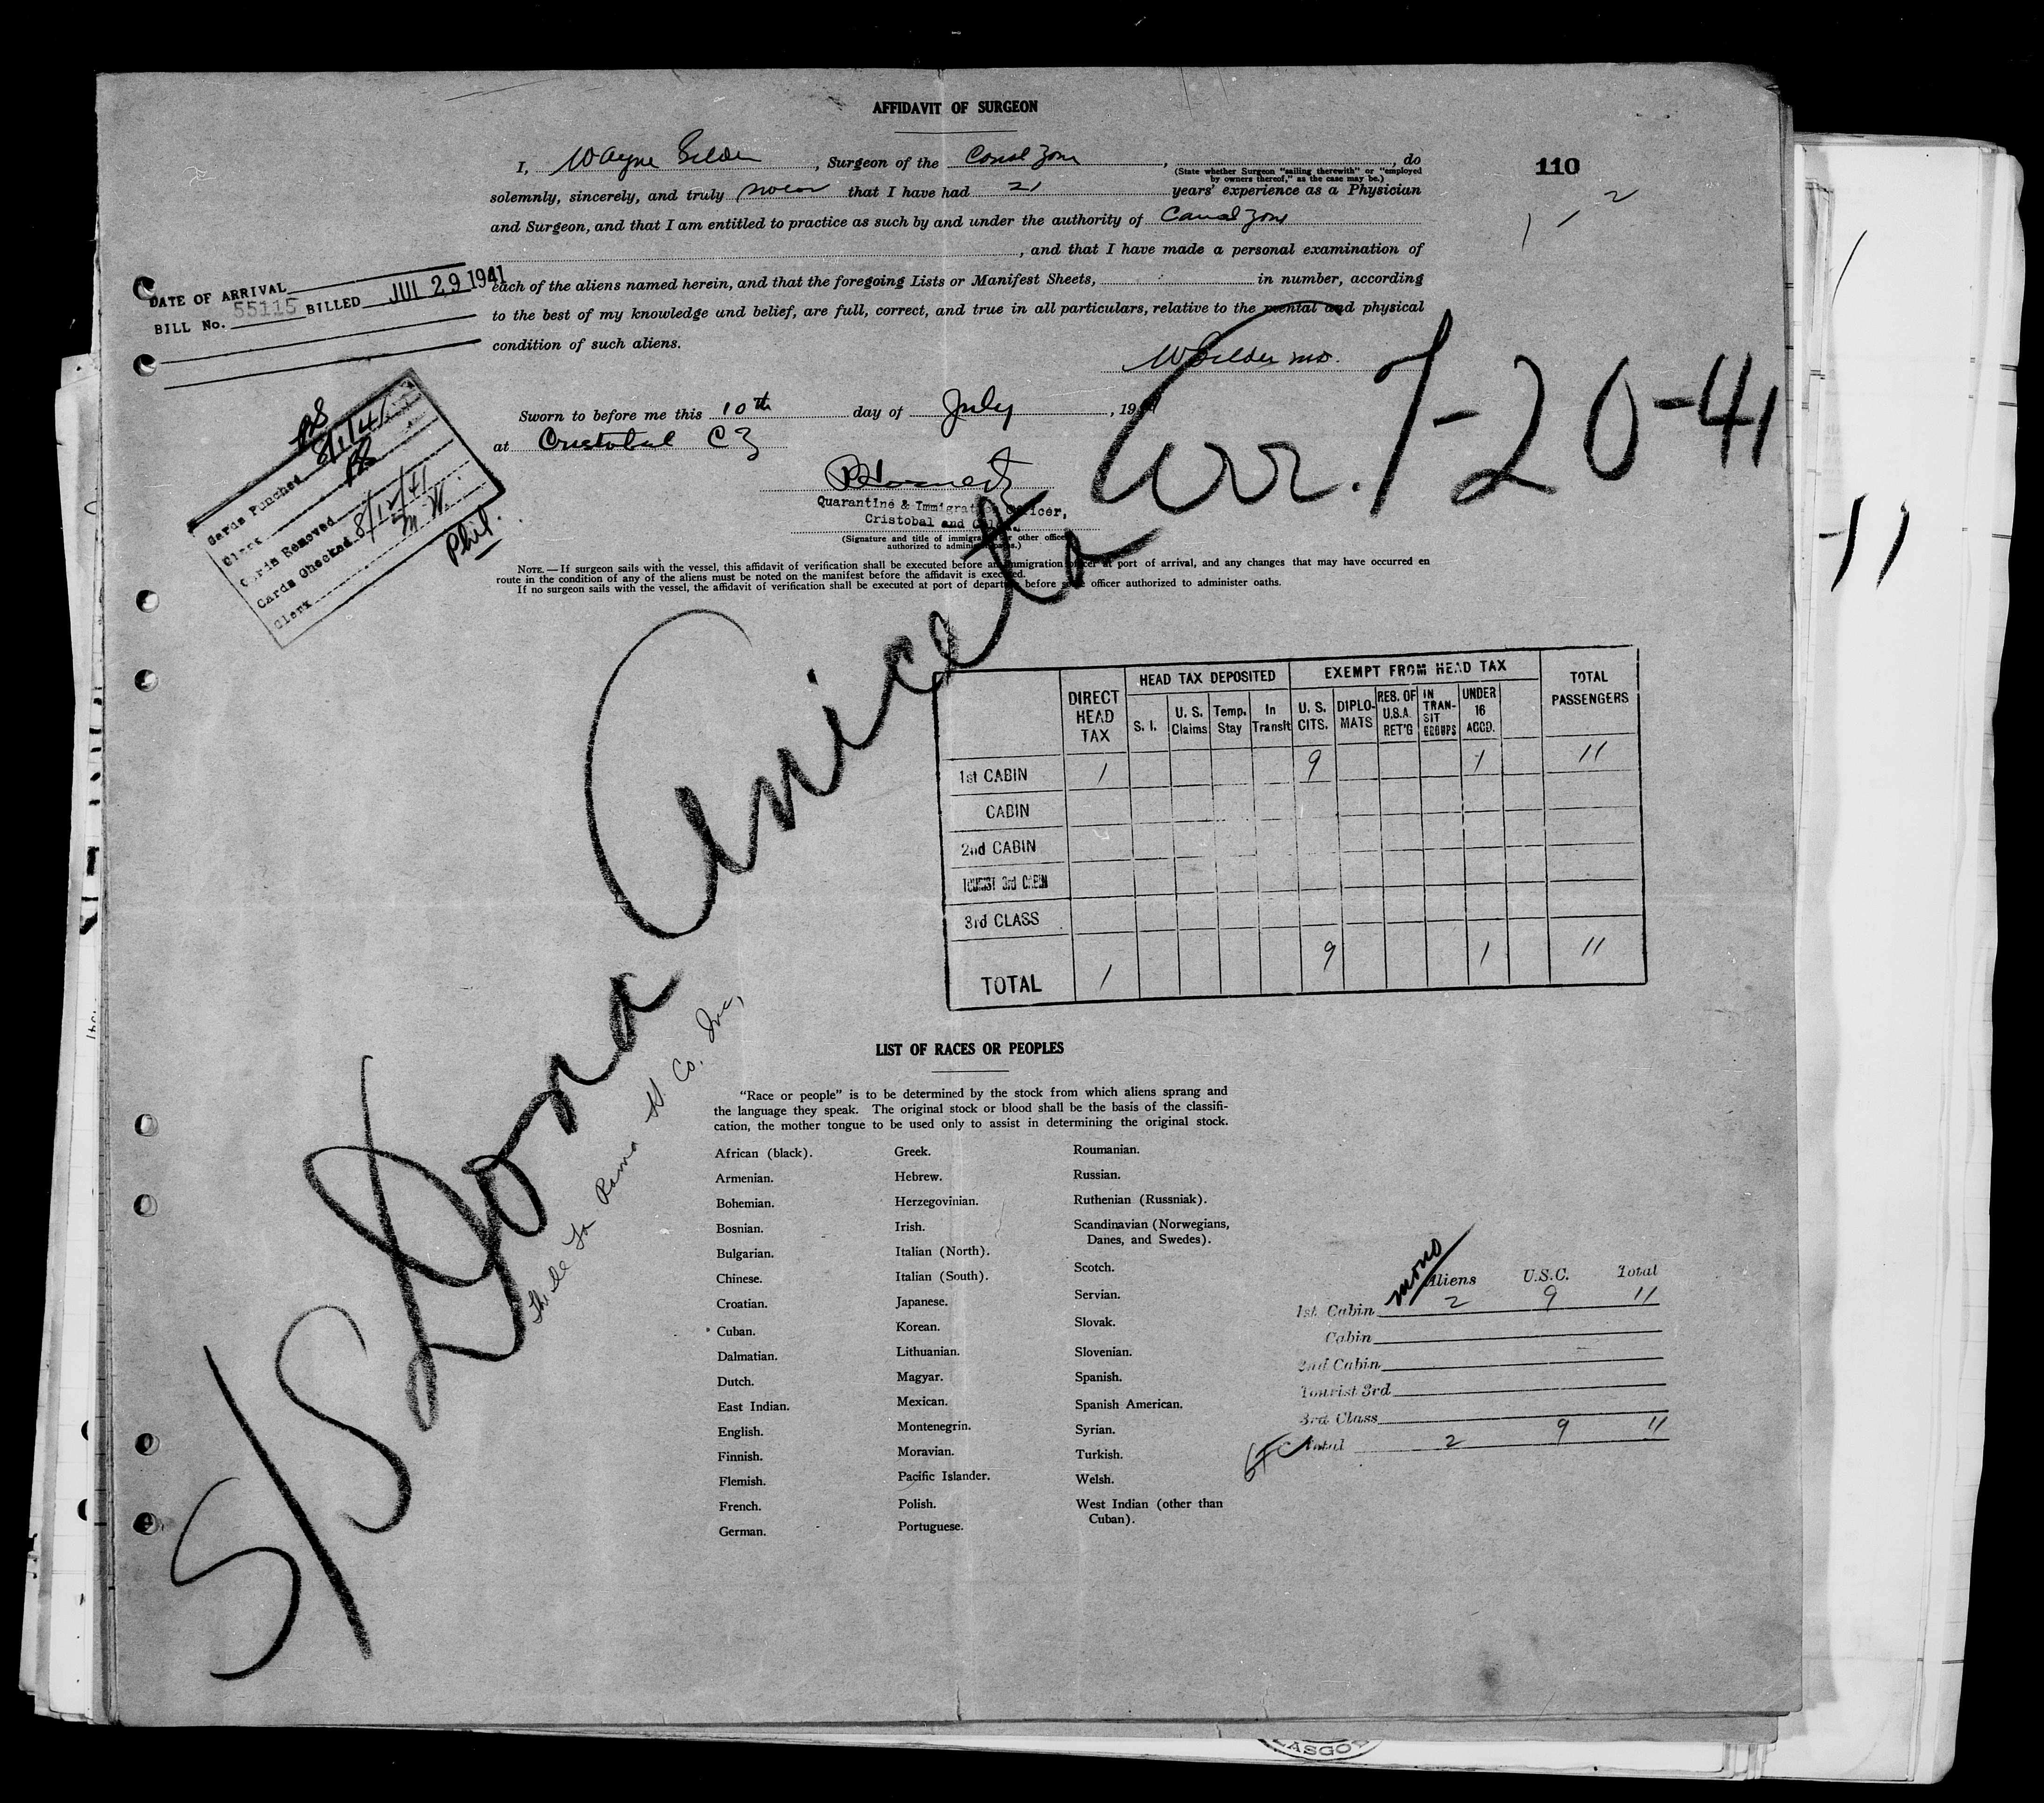 AFFIDAVIT OF SURGEON
110
I, Wayne Gilder, Surgeon of the Canal Zone, , do
(State whether Surgeon "sailing therewith" or "employed
by owners thereof," as the case may be.)
solemnly, sincerely, and truly swear that I have had 21 years' experience as a Physician
and Surgeon, and that I am entitled to practice as such by and under the authority of Canal Zone
, and that I have made a personal examination of
each of the aliens named herein, and that the foregoing Lists or Manifest Sheets, in number, according
to the best of my knowledge and belief, are full, correct, and true in all particulars, relative to the mental and physical
condition of such aliens.
1 - 2
DATE OF ARRIVAL
BILL No. 55115 BILLED JUL 29 1941
W Gilder MD.
Sworn to before me this 10th day of July, 19
at Cristobal CZ
Quarantine & Immigration Officer,
Cristobal and Colon.
(Signature and title of immigration or other officer
authorized to administer oaths.)
Arr. 7-20-41
Cards Punched 8/1/41
Clerk
Cards Removed
Cards Checked 8/12/41
Clerk
M.W.
Phil.
NOTE.—If surgeon sails with the vessel, this affidavit of verification shall be executed before an immigration officer at port of arrival, and any changes that may have occurred en
route in the condition of any of the aliens must be noted on the manifest before the affidavit is executed.
If no surgeon sails with the vessel, the affidavit of verification shall be executed at port of departure before some officer authorized to administer oaths.
11
S/S Dona Aniceta
The De La Rama SS Co. Inc,
DIRECT HEAD TAX
HEAD TAX DEPOSITED
EXEMPT FROM HEAD TAX
TOTAL PASSENGERS
S. I. U. S. Claims Temp. Stay In Transit U. S. CITS. DIPLOMATS RES. OF U.S.A. RET'G IN TRANSIT GROUPS UNDER 16 ACCD.
1st CABIN 1 9 1 11
CABIN
2nd CABIN
TOURIST 3rd CABIN
3rd CLASS
TOTAL 1 9 1 11
LIST OF RACES OR PEOPLES
"Race or people" is to be determined by the stock from which aliens sprang and
the language they speak. The original stock or blood shall be the basis of the classifi-
cation, the mother tongue to be used only to assist in determining the original stock.
African (black).
Armenian.
Bohemian.
Bosnian.
Bulgarian.
Chinese.
Croatian.
Cuban.
Dalmatian.
Dutch.
East Indian.
English.
Finnish.
Flemish.
French.
German.
Greek.
Hebrew.
Herzegovinian.
Irish.
Italian (North).
Italian (South).
Japanese.
Korean.
Lithuanian.
Magyar.
Mexican.
Montenegrin.
Moravian.
Pacific Islander.
Polish.
Portuguese.
Roumanian.
Russian.
Ruthenian (Russniak).
Scandinavian (Norwegians,
Danes, and Swedes).
Scotch.
Servian.
Slovak.
Slovenian.
Spanish.
Spanish American.
Syrian.
Turkish.
Welsh.
West Indian (other than
Cuban).
mono
Aliens U.S.C. Total
1st Cabin 2 9 11
Cabin
2nd Cabin
Tourist 3rd
3rd Class
Total 2 9 11